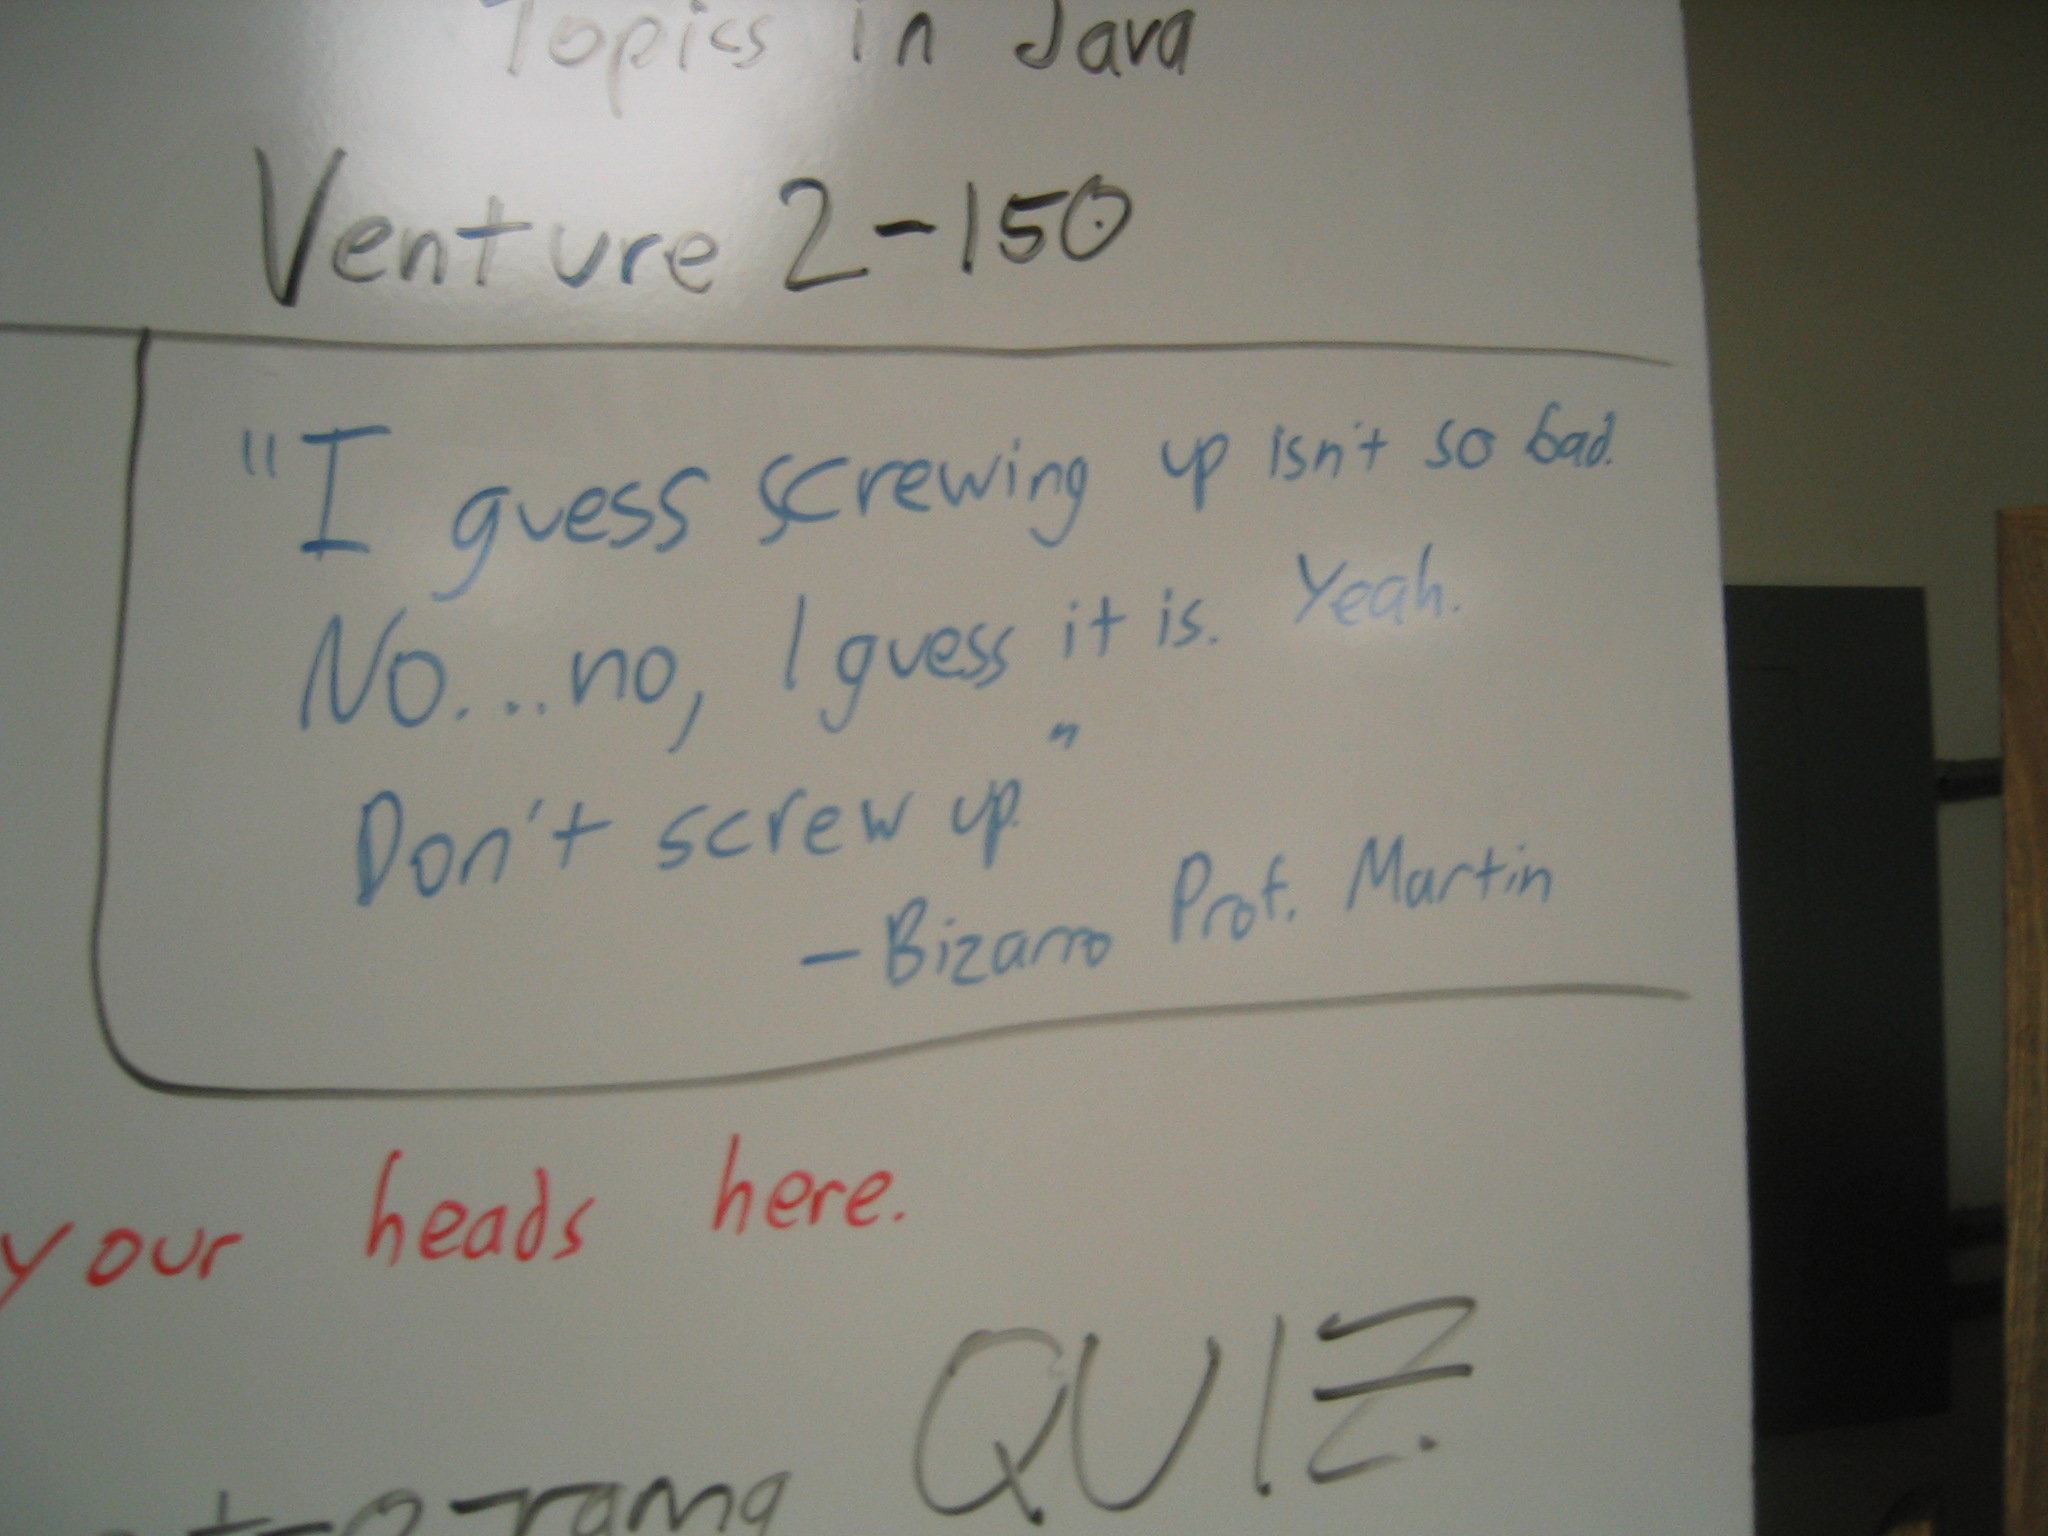 Topics in Java
Venture 2-150
"I guess screwing up isn't so bad.
No...no, I guess it is. Yeah.
Don't screw up."
-Bizarro Prof. Martin
your heads here.
QUIZ
-rama